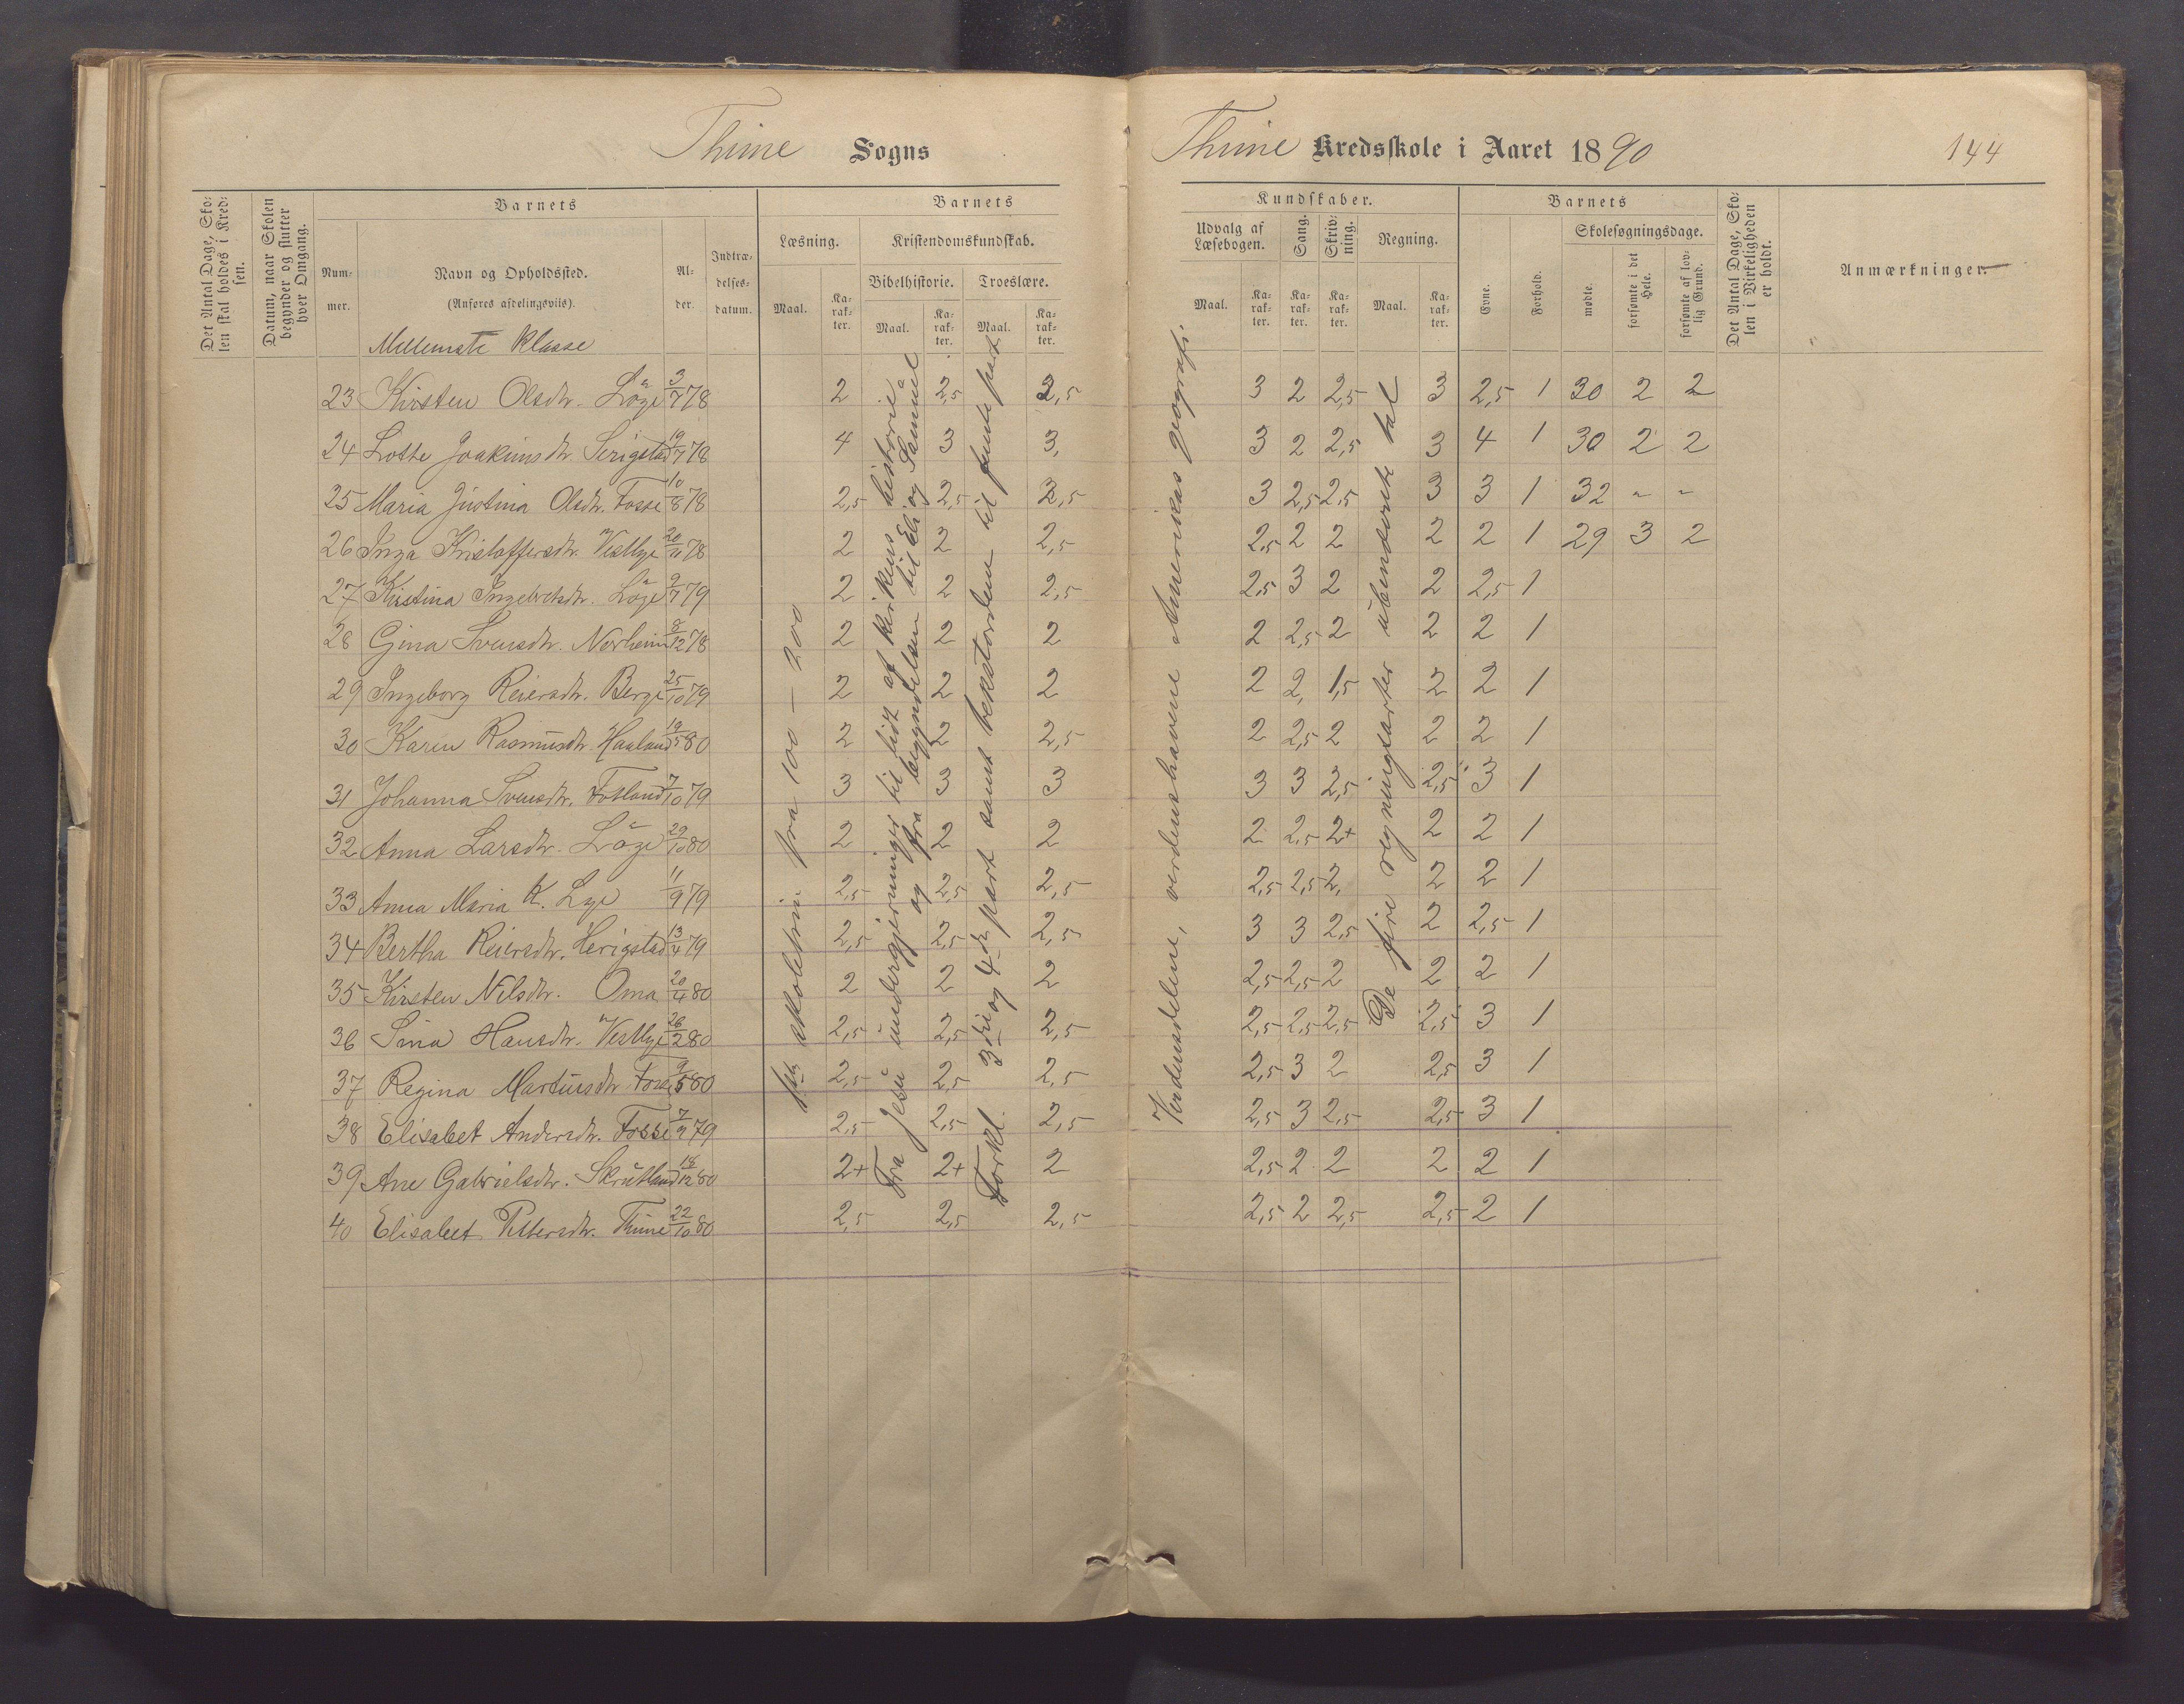 Thime Sogns Thime Kredsskole i Aaret 1890 144
Det Antal Dage, Skolen skal holdes i Kredsen.
Datum, naar Skolen begynder og slutter hver Omgang.
Barnets
Nummer.
Navn og Opholdssted.
(Anføres afdelingsvis).
Alder.
Indtrædelsesdatum.
Barnets
Læsning.
Maal.
Karakter.
Kristendomskundskab.
Bibelhistorie.
Maal.
Karakter.
Troeslære.
Maal.
Karakter.
Kundskaber.
Udvalg af Læsebogen.
Maal.
Karakter.
Sang.
Karakter.
Skrivning.
Karakter.
Regning.
Maal.
Karakter.
Barnets
Evne.
Forhold.
Skolesøgningsdage.
mødte.
forsømte i det Hele.
forsømte af lovlig Grund.
Det Antal Dage, Skolen i Virkeligheden er holdt.
Anmærkninger.
Mellemste Klasse
23 Kirsten Olsdtr. Löge 3/7 78 2 2,5 2,5 3 2 2,5 3 2,5 1 30 2 2
24 Lotte Joakimsdtr. Serigstad 19/7 78 4 3 3, 3 2 2,5 3 4 1 30 2 2
25 Maria Justina Olsdtr. Fosse 10/8 78 2,5 2,5 2,5 3 2,5 2,5 3 3 1 32 - -
26 Inga Kristoffersdtr. Vestlye 20/11 78 2 2 2,5 2,5 2 2 2 2 1 29 3 2
27 Kristina Ingebretsdtr. Löge 9/7 79 2 2 2,5 2,5 3 2 2 2,5 1
28 Gina Svensdtr. Norheim 8/12 78 2 2 2 2 2,5 2 2 2 1
29 Ingeborg Reiersdtr. Berge 25/10 79 2 2 2 2 2, 1,5 2 2 1
30 Karen Rasmusdtr. Haaland 19/5 80 2 2 2,5 2 2,5 2 2 2 1
31 Johanna Svensdtr. Fotland 7/10 79 3 3 3 3 3 2,5 2,5 3 1
32 Anna Larsdtr. Löge 29/10 80 2 2 2 2 2,5 2+ 2 2 1
33 Anna Maria K. Lye 11/9 79 2,5 2,5 2,5 2,5 2,5 2, 2 2 1
34 Bertha Reiersdtr. Herigstad 13/4 79 2,5 2,5 2,5 3 3 2,5 2 2,5 1
35 Kirsten Nilsdtr. Oma 20/4 80 2 2 2 2,5 2,5 2 2 2 1
36 Sina Hansdtr. Vestlye 26/2 80 2,5 2,5 2,5 2,5 2,5 2,5 2,5 3 1
37 Regina Martinsdtr. Fosse 9/5 80 2,5 2,5 2,5 2,5 3 2 2,5 3 1
38 Elisabet Andersdtr. Fosse 7/9 79 2,5 2,5 2,5 2,5 3 2,5 2,5 3 1
39 Ane Gabrielsdtr. Skrutland 18/12 80 2+ 2+ 2 2,5 2 2 2 2 1
40 Elisabet Pettersdtr. Thime 22/10 80 2,5 2,5 2,5 2,5 2 2,5 2,5 2 1
skoletrin fra 100 — 200
Fra Jesu undergjerninger til lidt af kirkens historie
og fra begyndelsen til Eli og Samuel
Forkl. 3die og 4de part samt tekstorden til femte part
Verdensdelene, verdenshavene Amerikas geografi.
De fire regningsarter ubenævnte tal